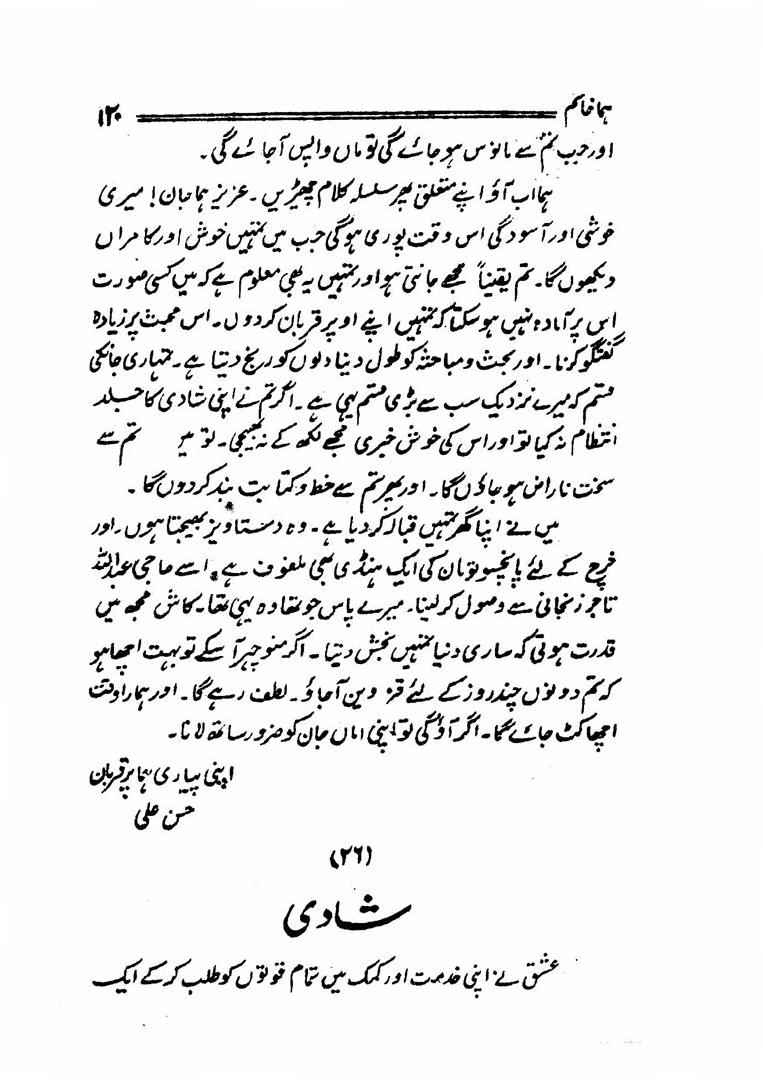 ہما خانم ۱۲۰
اور جب تم سے مانوس ہو جائے گی تو ماں واپس آجائے گی۔
ہما اب آؤ اپنے متعلق پھر سلسلہ کلام چھیڑیں۔ عزیز ہما جان! میری
خوشی اور آسودگی اس وقت پوری ہوگی جب میں تمہیں خوش اور کامراں
دیکھوں گا۔ تم یقیناً مجھے جانتی ہو اور تمہیں یہ بھی معلوم ہے کہ میں کسی صورت
اس پر آمادہ نہیں ہو سکتا کہ تمہیں اپنے اوپر قربان کر دوں۔ اس مبحث پر زیادہ
گفتگو کرنا۔ اور بحث و مباحثہ کو طول دینا دلوں کو رنج دیتا ہے۔ تمہاری جان کی
قسم کہ میرے نزدیک سب سے بڑی قسم یہی ہے۔ اگر تم نے اپنی شادی کا جلد
انتظام نہ کیا تو اور اس کی خوش خبری مجھے لکھ کے نہ بھیجی۔ تو میں تم سے
سخت ناراض ہو جاؤں گا۔ اور پھر تم سے خط و کتابت بند کر دوں گا۔
میں نے اپنا گھر تمہیں قبالہ کر دیا ہے۔ وہ دستاویز بھیجتا ہوں۔ اور
خرچ کے لئے پانچسو تومان کی ایک ہنڈی بھی ملفوف ہے۔ اسے حاجی عبداللہ
تاجر زنجانی سے وصول کر لینا۔ میرے پاس جو تھا وہ یہی تھا۔ کاش مجھ میں
قدرت ہوتی کہ ساری دنیا تمہیں بخش دیتا۔ اگر منوچہر آسکے تو بہت اچھا ہو
کہ تم دونوں چند روز کے لئے قزوین آجاؤ۔ لطف رہے گا۔ اور ہمارا وقت
اچھا کٹ جائے گا۔ اگر آؤگی تو اپنی اماں جان کو ضرور ساتھ لانا۔
اپنی پیاری ہما پر قربان
حسن علی
(۲۶)
شادی
عشق نے اپنی خدمت اور کمک میں تمام قوتوں کو طلب کر کے ایک